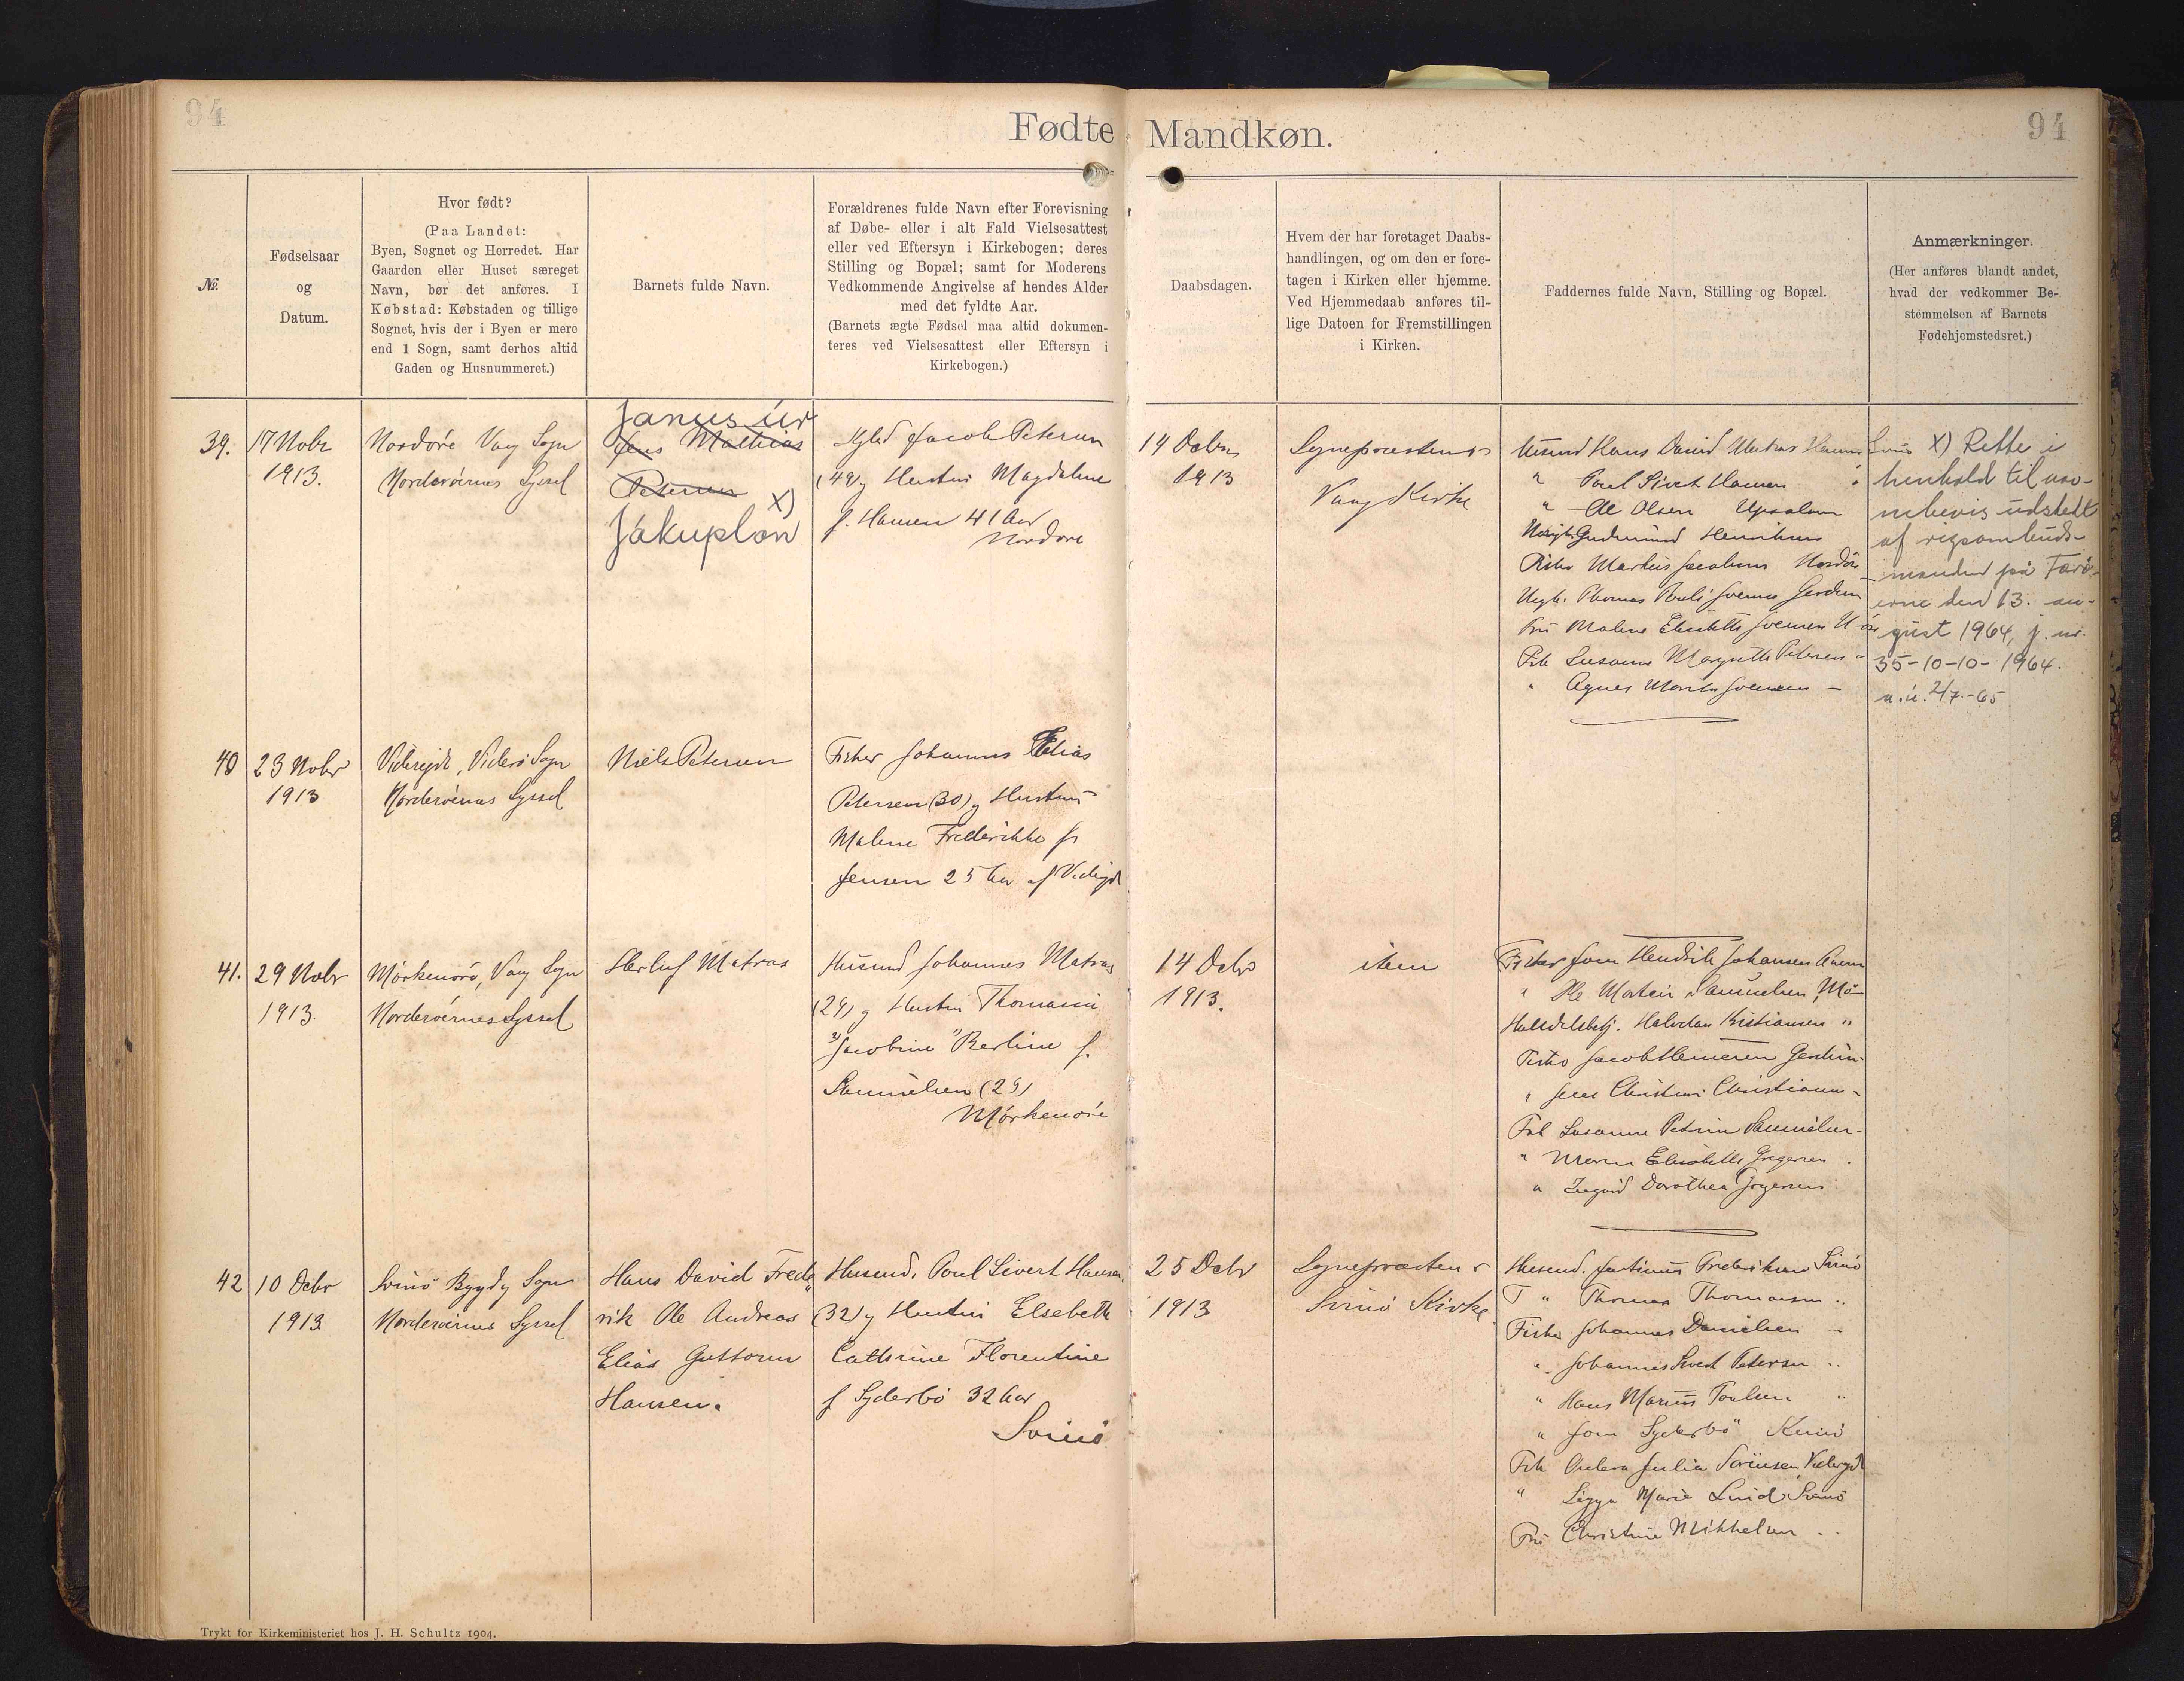 94
Fødte Mandkøn.
94
№.
Fødselsaar
og
Datum.
Hvor født?
(Paa Landet:
Byen, Sognet og Herredet. Har
Gaarden eller Huset særeget
Navn, bør det anføres. I
Købstad: Købstaden og tillige
Sognet, hvis der i Byen er mere
end 1 Sogn, samt derhos altid
Gaden og Husnummeret.)
Barnets fulde Navn.
Forældrenes fulde Navn efter Forevisning
af Døbe- eller i alt Fald Vielsesattest
eller ved Eftersyn i Kirkebogen; deres
Stilling og Bopæl; samt for Moderens
Vedkommende Angivelse af hendes Alder
med det fyldte Aar.
(Barnets ægte Fødsel maa altid dokumen-
teres ved Vielsesattest eller Eftersyn i
Kirkebogen.)
Daabsdagen.
Hvem der har foretaget Daabs-
handlingen, og om den er fore-
tagen i Kirken eller hjemme.
Ved Hjemmedaab anføres til-
lige Datoen for Fremstillingen
i Kirken.
Faddernes fulde Navn, Stilling og Bopæl.
Anmærkninger.
(Her anføres blandt andet,
hvad der vedkommer Be-
stemmelsen af Barnets
Fødehjemstedsret.)
39.
17 Nobr
1913.
Nordøre Vaag Sogn
Norderøernes Syssel
Janus úr
Jens Mathias
Petersen X)
Jákupslon
Jacob Petersen
(49) og Hustru Magdalene
f. Hansen 41 Aar
Nordøre
14 Debr
1913
Sognepræsten i
Vaag Kirke
Husmd Hans David Hansen Svinø
" Poul Sivert Hansen "
" Ole Olsen
Gudmund Henriksen
Fisker Markus Jacobsen Nordøre
Ungk. Thomas Pauli Joensen
Fru Malene Elisabeth Joensen
Frk Susanne Margrethe Petersen "
" Agnes Joensen -
X) Rettet i
henhold til nav-
nebevis udstedt
af rigsombuds-
manden på Færø-
erne den 13. au-
gust 1964, j. nr.
35-10-10-1964.
2/7.-65
40
23 Nobr
1913
Videreide, Viderø Sogn
Norderøernes Syssel
Niels Petersen
Fisker Johannes Elias
Petersen (30) og Hustru
Malene Frederikke f.
Jensen 25 Aar af
41.
29 Nobr
1913.
Mørkenøre, Vaag Sogn
Norderøernes Syssel
Herluf Matras
Husmd Johannes Matras
(29) og Hustru Thomasia
"Jacobine" Berline f.
Samuelsen (29)
Mørkenøre
14 Debr
1913.
item
Fisker Joen Hendrik Johansen
" Ole Morten Samuelsen, Mø-
Halvdan Kristiansen "
Fisker Jacob
" Jens Christian Christiansen -
Frk Susanne Petrine Samuelsen -
" Elisabeth Gregersen .
" Ingrid Dorothea
42
10 Debr
1913
Svinø Bygd og Sogn
Norderøernes Syssel
Hans David Frede-
rik Ole Andreas
Elias Guttorm
Hansen.
Husmd. Poul Sivert Hansen
(32) og Hustru Elsebeth
Cathrine Florentine
f Syderbø 32 Aar
Svinø
25 Debr
1913
Sognepræsten i
Svinø Kirke
Husmd. Justinus Frederiksen Svinø
" Thomas Thomassen "
Fisker Johannes Danielsen -
" Johannes Sivert Petersen "
" Hans Marius Poulsen "
" Joen Syderbø Kunø
Frk Julia Sørensen
" Marie Lind Svinø
Fru Christine Mikkelsen
Trykt for Kirkeministeriet hos J. H. Schultz 1904.